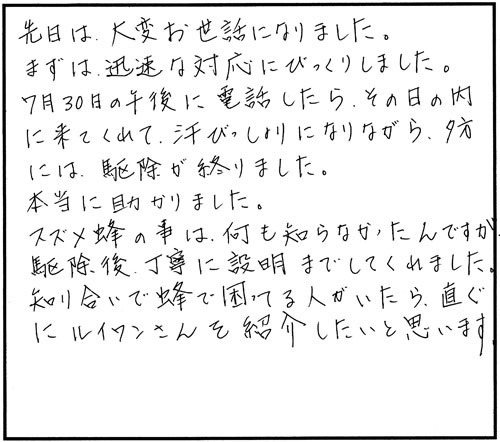 先日は、大変お世話になりました。
まずは、迅速な対応にびっくりしました。
7月30日の午後に電話したら、その日の内
に来てくれて、汗びっしょりになりながら、夕方
には、駆除が終りました。
本当に助かりました。
スズメ蜂の事は、何も知らなかったんですが、
駆除後、丁寧に説明までしてくれました。
知り合いで蜂で困ってる人がいたら、直ぐ
にルイワンさんを紹介したいと思います。